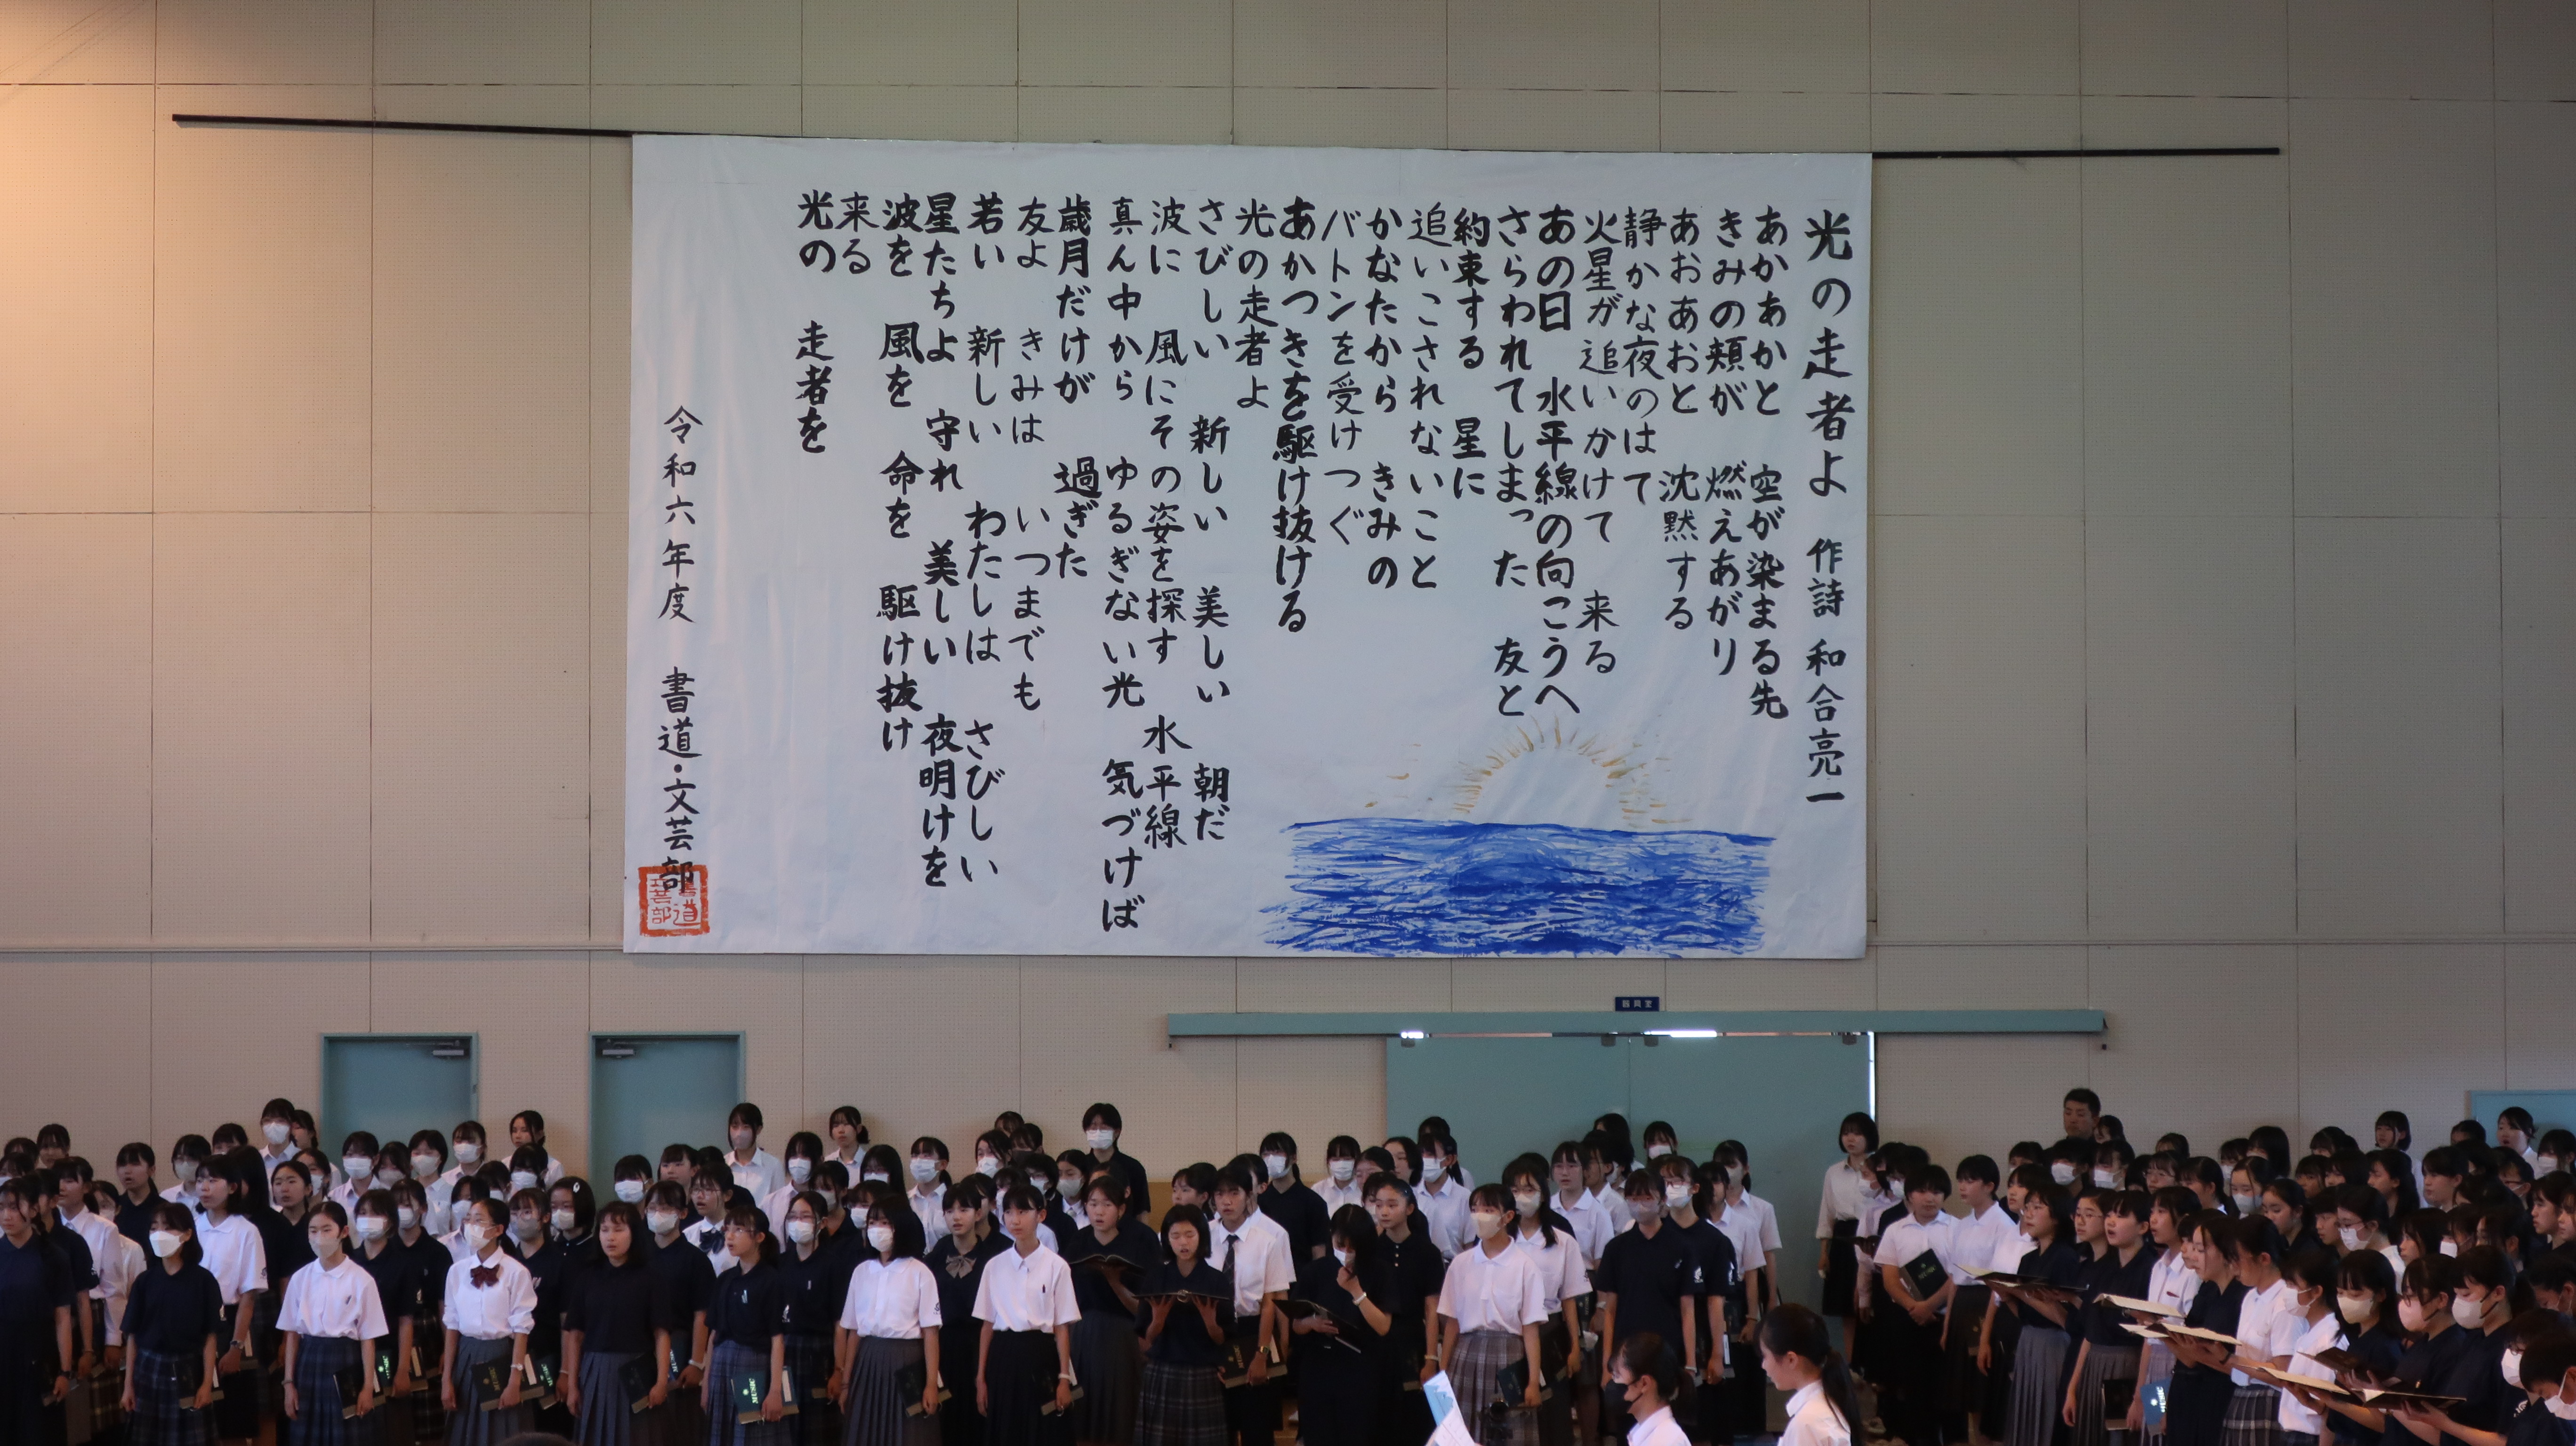 光の走者よ 作詩 和合亮一
あかあかと 空が染まる先
きみの頬が 燃えあがり
あおあおと 沈黙する
静かな夜のはて
火星が追いかけて 来る
あの日 水平線の向こうへ
さらわれてしまった 友と
約束する 星に
追いこされないこと
かなたから きみの
バトンを受けつぐ
あかつきを駆け抜ける
光の走者よ
さびしい 新しい 美しい 朝だ
波に 風にその姿を探す 水平線
真ん中から ゆるぎない光 気づけば
歳月だけが 過ぎた
友よ きみは いつまでも
若い 新しい わたしは さびしい
星たちよ 守れ 美しい 夜明けを
波を 風を 命を 駆け抜け
来る
光の 走者を
令和六年度 書道・文芸部
器具室
MUSIC